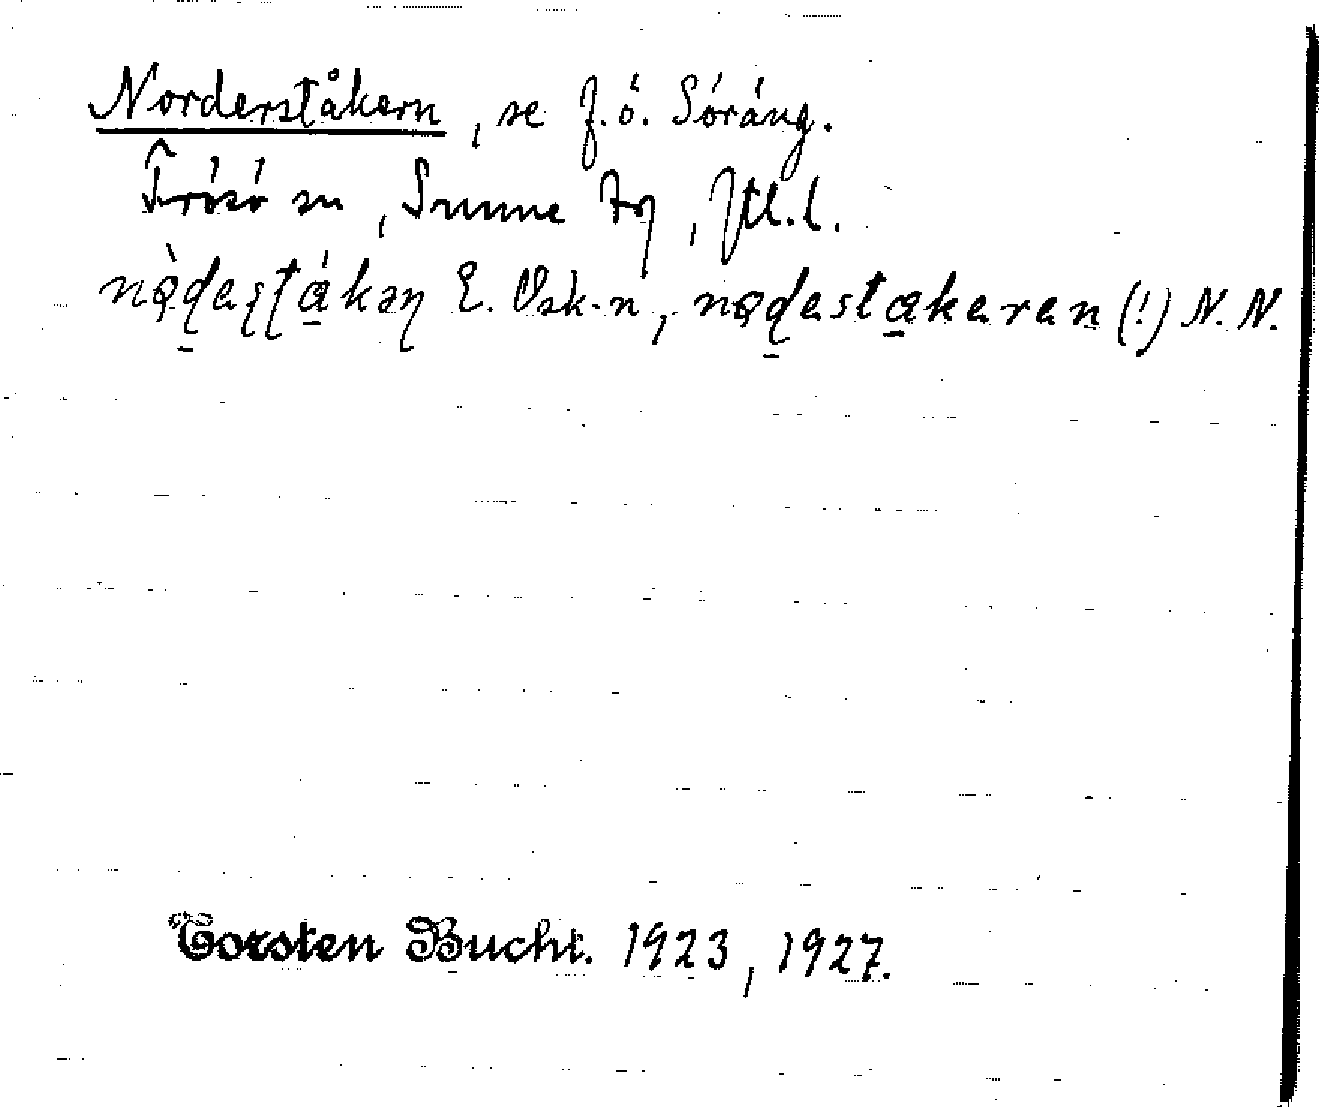 Norderståkern, se f.ö. Söräng.
Frösö sn, Sunne tg, Jtl.l.
nǫ̀ḍesṭákəṇ E. Osk-n, nǫḍestakeren (!) N. N.
Torsten Bucht. 1923, 1927.